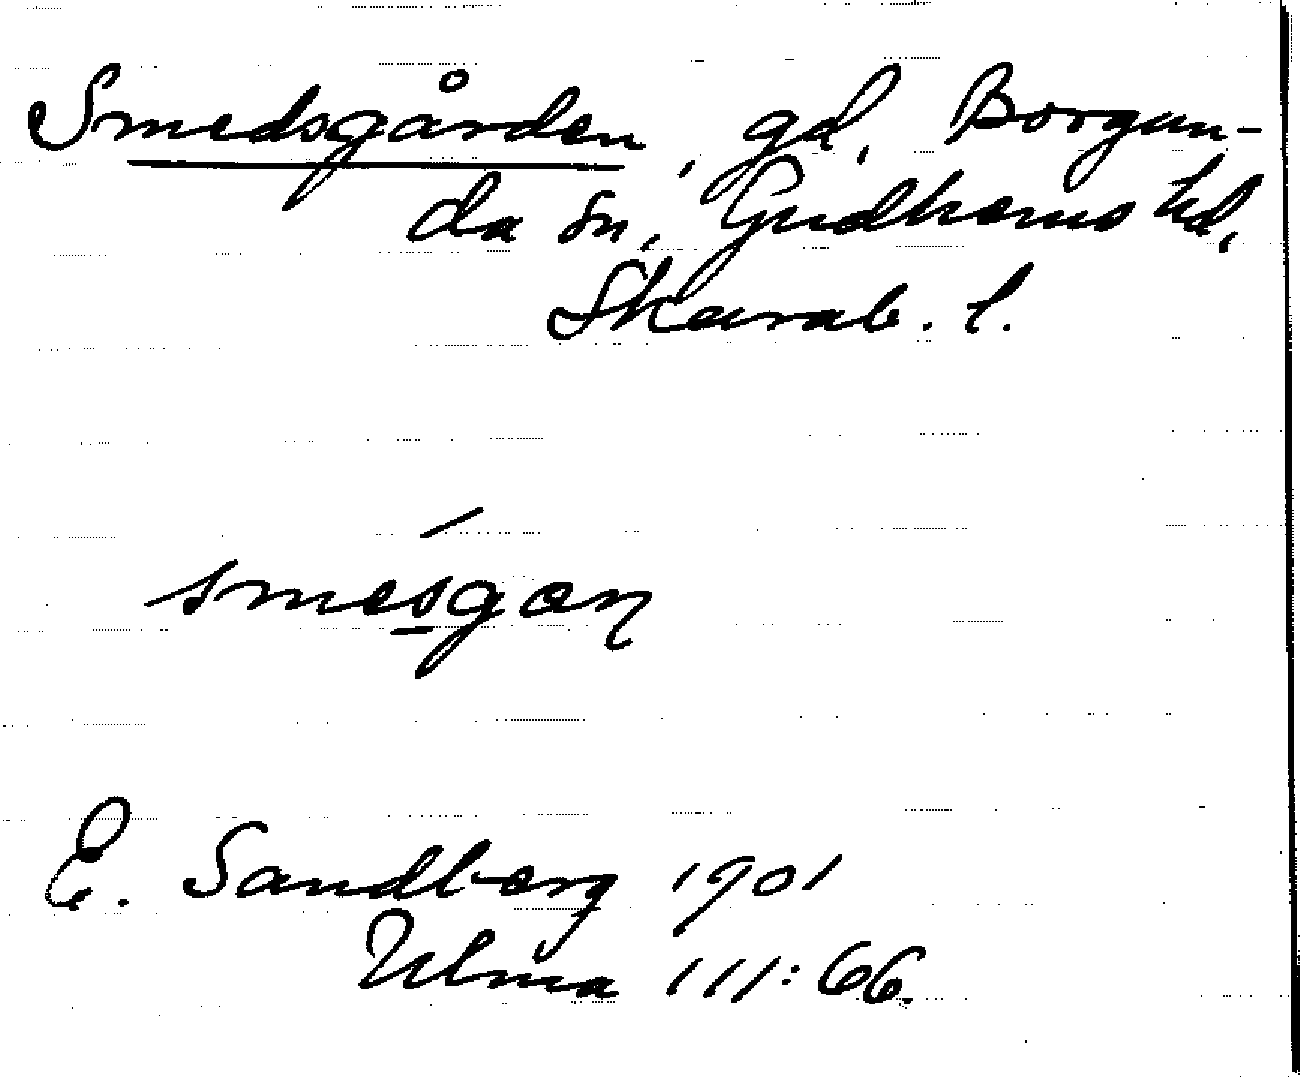 Smedsgården, gd, Borgun-
da sn, Gudhems hd,
Skarab. l.
smesgan
E. Sandberg 1901
Ulma 111:66.